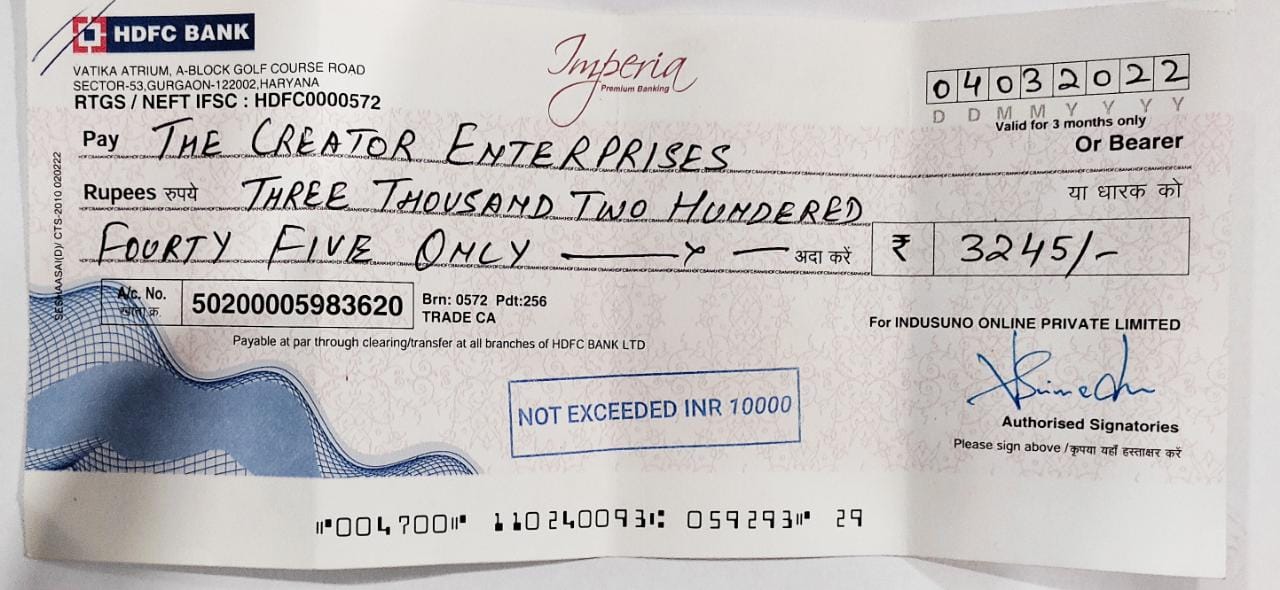 HDFC BANK
VATIKA ATRIUM, A-BLOCK GOLF COURSE ROAD
SECTOR-53,GURGAON-122002,HARYANA
RTGS / NEFT IFSC : HDFC0000572
Imperia
Premium Banking
04032022
D D M M Y Y Y Y
Valid for 3 months only
Pay THE CREATOR ENTERPRISES
Or Bearer
Rupees रुपये THREE THOUSAND TWO HUNDERED
या धारक को
FOURTY FIVE ONLY अदा करें
₹ 3245/-
A/c. No.
खाता क्र.
50200005983620
Brn: 0572 Pdt:256
TRADE CA
Payable at par through clearing/transfer at all branches of HDFC BANK LTD
For INDUSUNO ONLINE PRIVATE LIMITED
NOT EXCEEDED INR 10000
Authorised Signatories
Please sign above /कृपया यहाँ हस्ताक्षर करें
⑈004700⑈ 110240093⑆ 059293⑈ 29
CTS-2010 020222